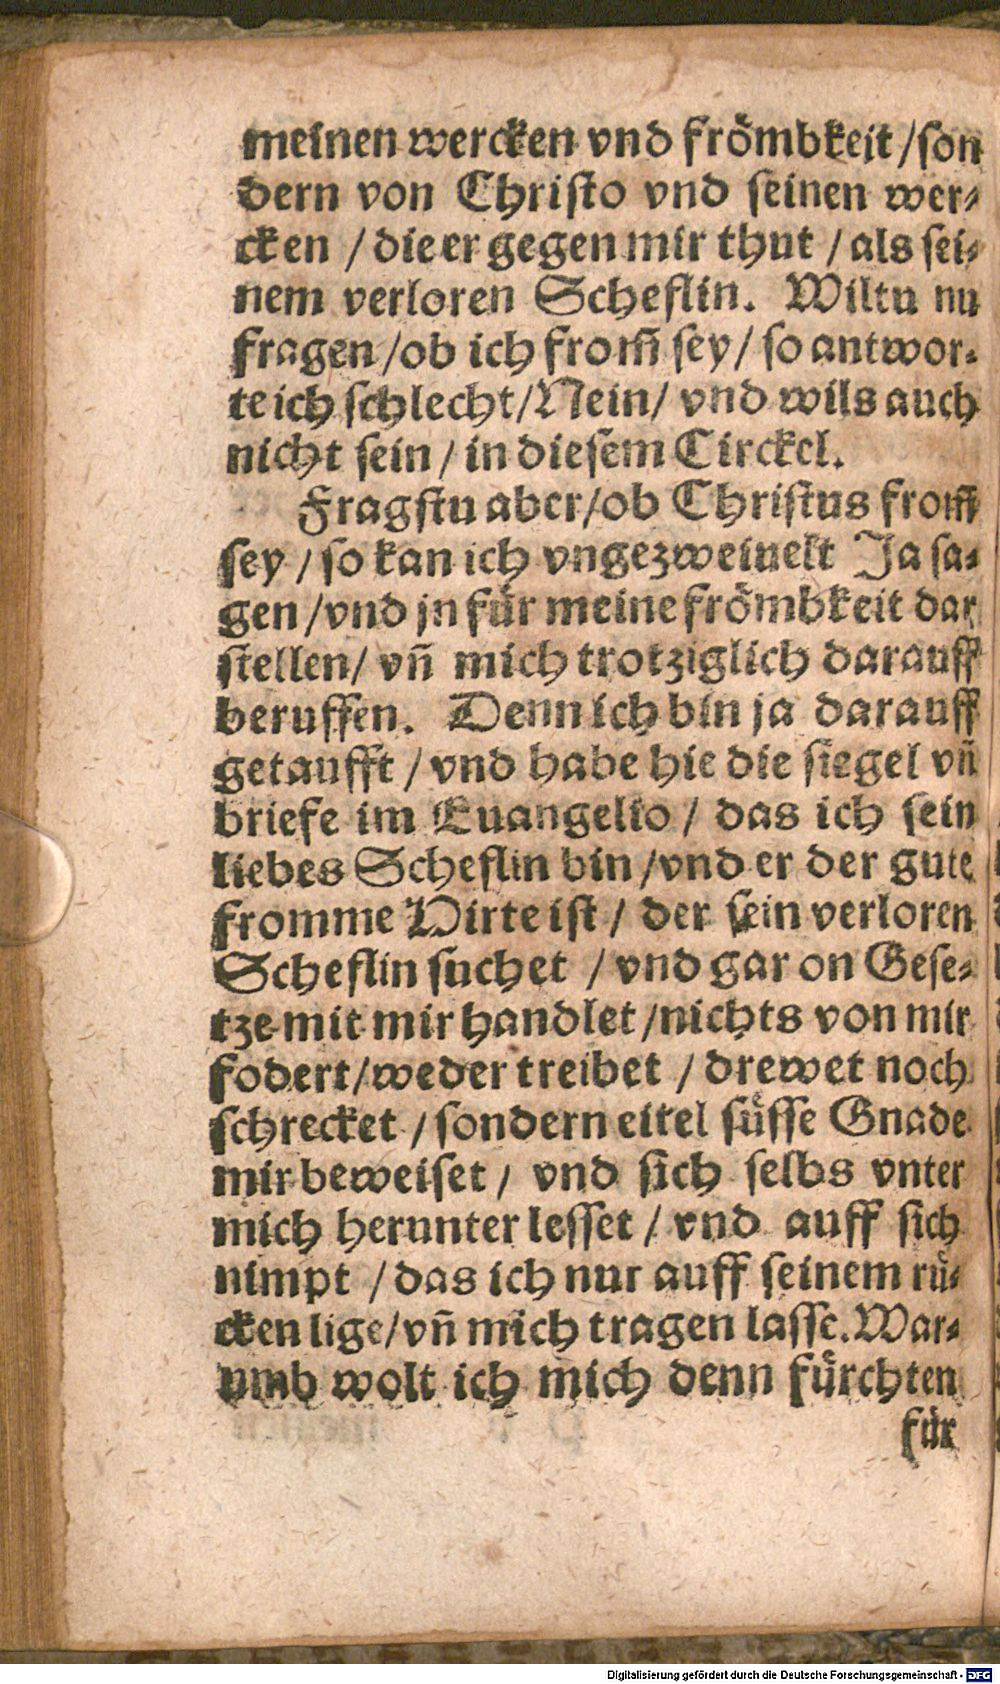 meinen wercken vnd frömbkeit /son
dern von Christo vnd seinen wer-
cken / die er gegen mir thut / als sei-
nem verloren Scheflin. Wiltu nu
fragen /ob ich from̃ sey/ so antwor-
te ich schlecht/Nein/ vnd wils auch
nicht sein / in diesem Circkel.
Fragstu aber/ob Christus from̃
sey / so kan ich vngezweiuelt Ja sa-
gen /vnd jn für meine frömbkeit dar
stellen/ vñ mich trotziglich darauff
beruffen. Denn ich bin ja darauff
getaufft / vnd habe hie die siegel vñ
briefe im Euangelio / das ich sein
liebes Scheflin bin /vnd er der gute
fromme Hirte ist / der sein verloren
Scheflin suchet / vnd gar on Gese-
tze mit mir handlet /nichts von mir
fodert/weder treibet / drewet noch
schrecket / sondern eitel süsse Gnade
mir beweiset / vnd sich selbs vnter
mich herunter lesset / vnd auff sich
nimpt / das ich nur auff seinem rü-
cken lige/vñ mich tragen lasse. War-
umb wolt ich mich denn fürchten
für
Digitalisierung gefördert durch die Deutsche Forschungsgemeinschaft - DFG